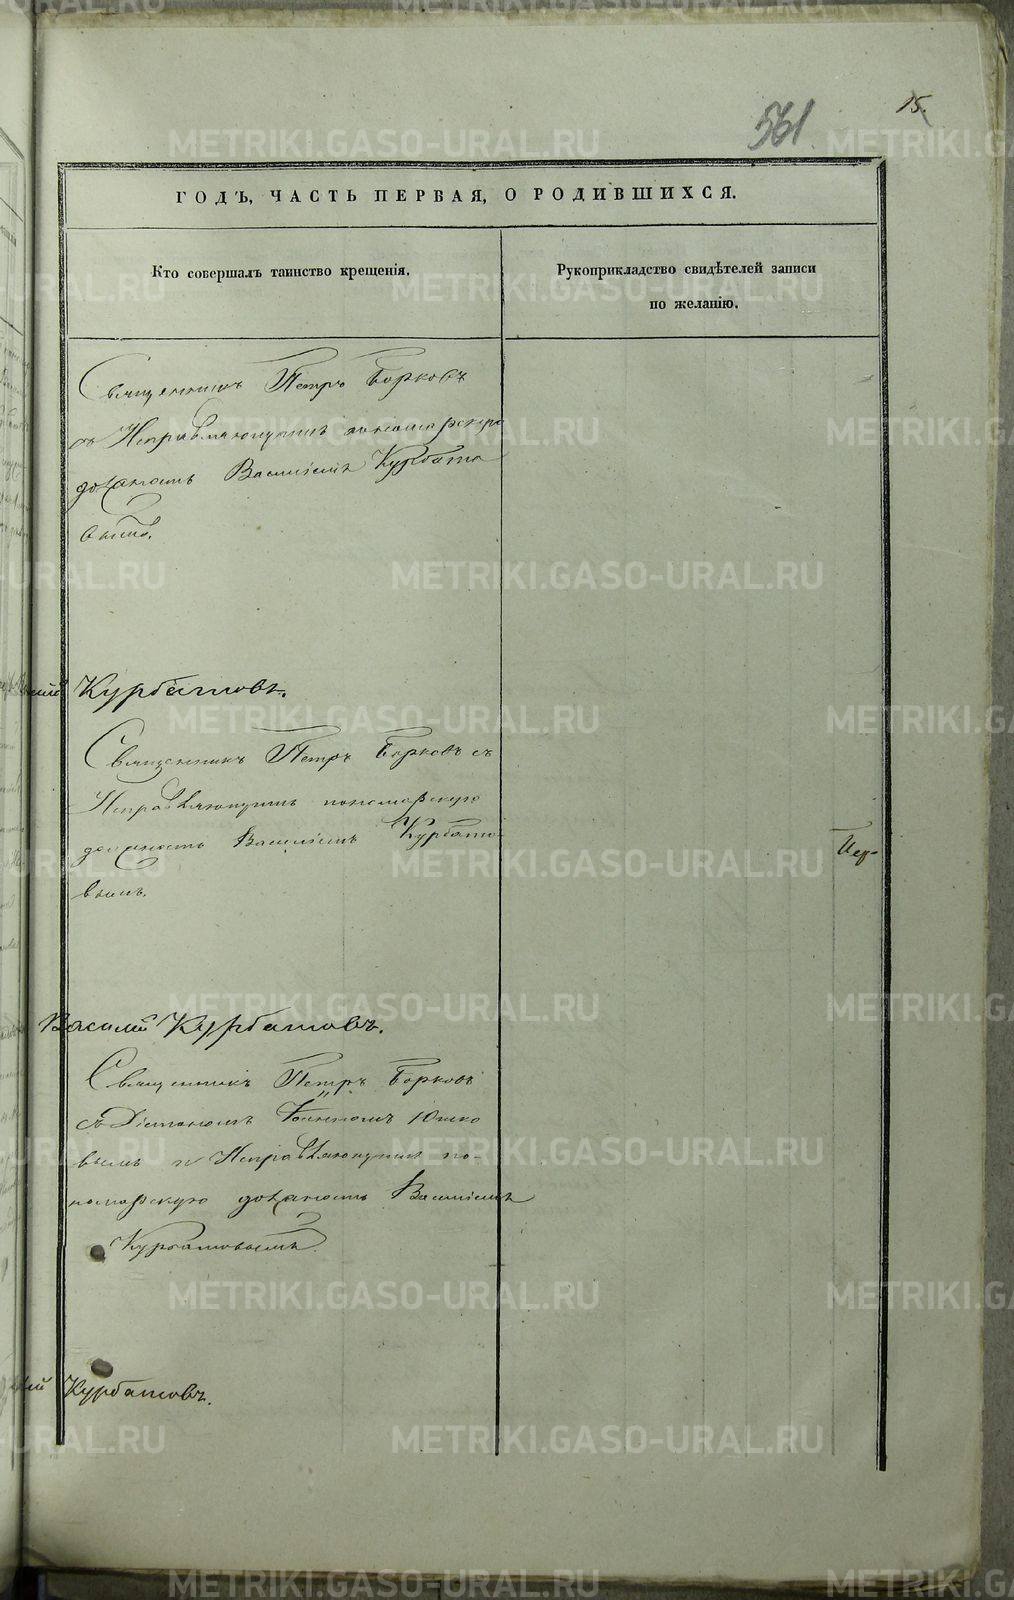 15.
561
ГОДЪ, ЧАСТЬ ПЕРВАЯ, О РОДИВШИХСЯ.
Кто совершалъ таинство крещенія.
Рукоприкладство свидѣтелей записи
по желанію.
Священникъ Петръ Борковъ
съ Исправляющимъ пономарскую
должность Василіемъ Курбато
вымъ.
Курбатовъ.
Священникъ Петръ Борковъ съ
Исправляющимъ пономарскую
должность Василіемъ Курбато-
вымъ.
Иер-
Василій Курбатовъ.
Священникъ Петръ Борковъ
съ Діакономъ Іоанномъ Юшко
вымъ и Исправляющимъ по-
номарскую должность Василіемъ
Курбатовымъ.
Курбатовъ.
METRIKI.GASO-URAL.RU